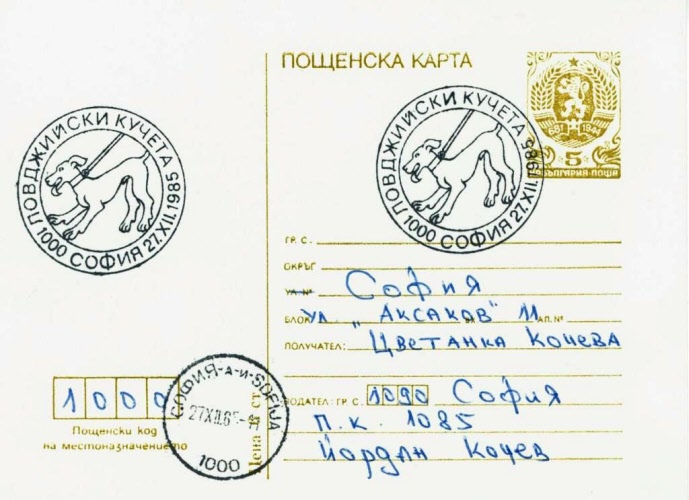 ПОЩЕНСКА КАРТА
681 1944
5
БЪЛГАРИЯ·ПОЩА
ЛОВДЖИЙСКИ КУЧЕТА
1000 СОФИЯ 27.XII.1985
ЛОВДЖИЙСКИ КУЧЕТА
1000 СОФИЯ 27.XII.1985
ГР. С.
ОКРЪГ
УЛ. № София
БЛОК ул „Аксаков" 11 АП. №
ПОЛУЧАТЕЛ: Цветанка Кочева
ПОДАТЕЛ: ГР. С. 1090 София
п.к. 1085
Йордан Кочев
1000
Пощенски код
на местоназначението
СОФИЯ-А-И-SOFIJA
1000
Цена ст.